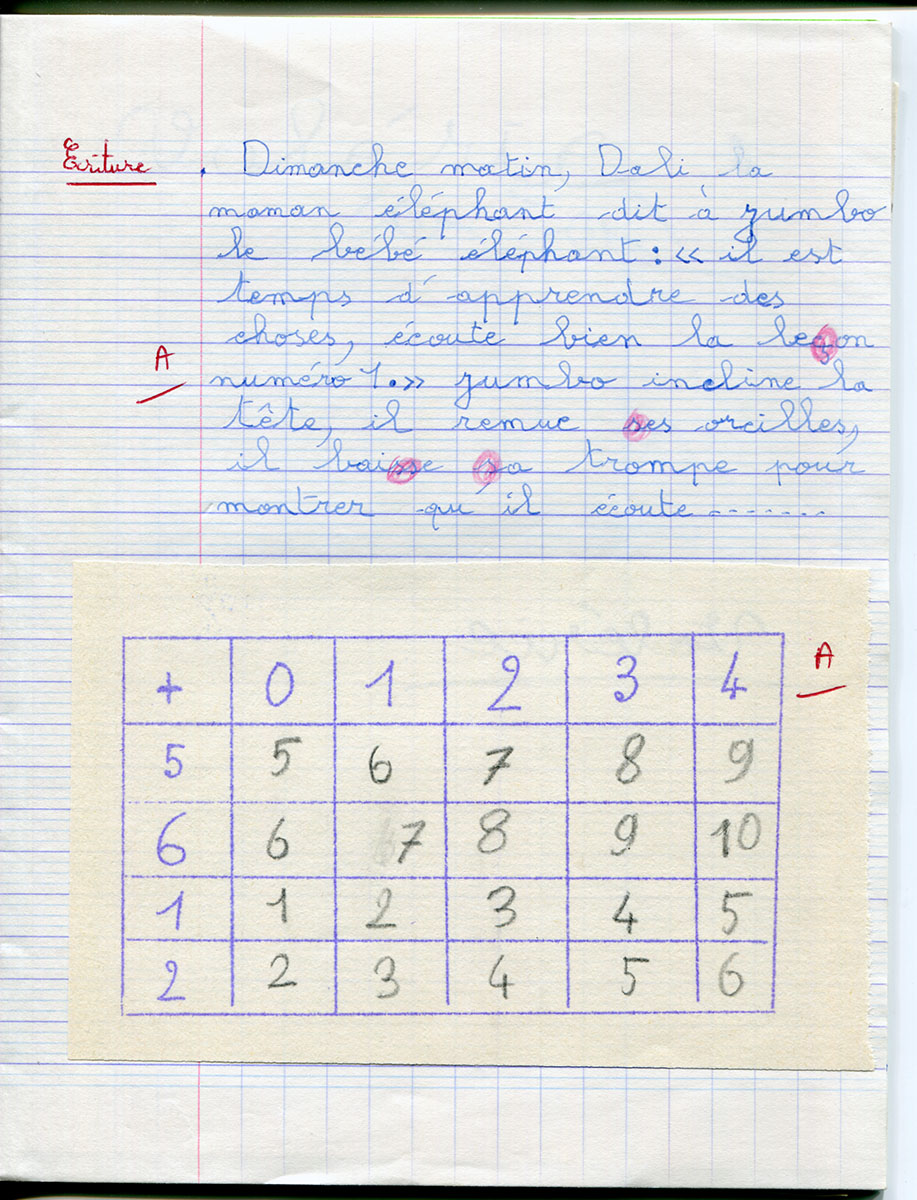 Ecriture . Dimanche matin, Dali la
maman éléphant dit à zumbo
le bébé éléphant : « il est
temps d'apprendre des
choses, écoute bien la leçon
A numéro 1. » zumbo incline la
tête, il remue ses oreilles,
il baisse sa trompe pour
montrer qu'il écoute .......
A
+ 0 1 2 3 4
5 5 6 7 8 9
6 6 7 8 9 10
1 1 2 3 4 5
2 2 3 4 5 6